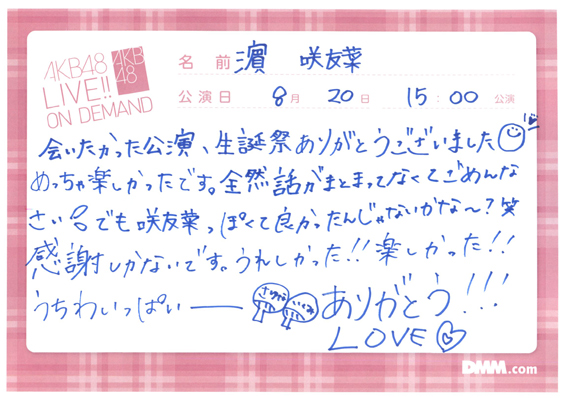 AKB48
LIVE!!
ON DEMAND
AKB
48
名前 濵 咲友菜
公演日 8月 20日 15:00 公演
会いたかった公演、生誕祭ありがとうございました
めっちゃ楽しかったです。全然話がまとまってなくてごめんな
さい でも咲友菜っぽくて良かったんじゃないかな〜?笑
感謝しかないです。うれしかった!!楽しかった!!
うちわいっぱい── ありがとう!!!
LOVE
DMM.com